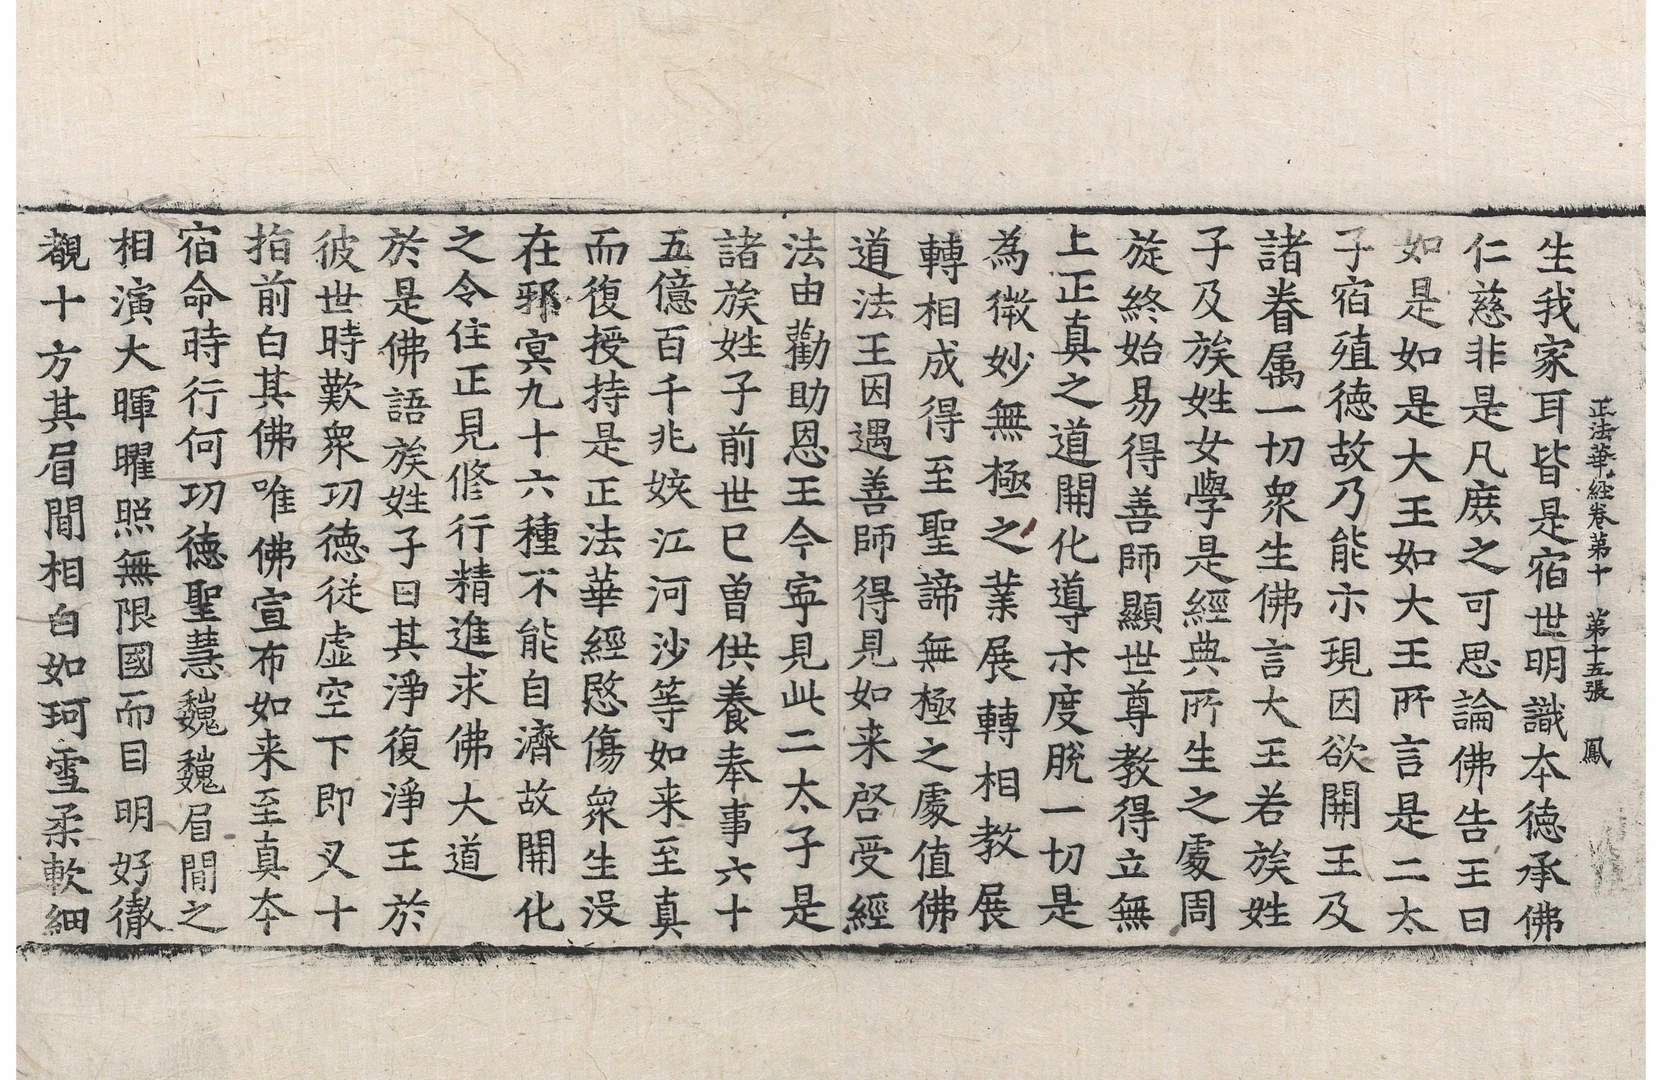 正法華經卷第十　第十五張　鳳
生我家耳皆是宿世明識本德承佛
仁慈非是凡庶之可思論佛告王曰
如是如是大王如大王所言是二太
子宿殖德故乃能示現因欲開王及
諸眷属一切衆生佛言大王若族姓
子及族姓女學是經典所生之處周
旋終始易得善師顯世尊教得立無
上正真之道開化導示度脫一切是
為微妙無極之業展轉相教展
轉相成得至聖諦無極之處值佛
道法王因遇善師得見如来啓受經
法由勸助恩王今寧見此二太子是
諸族姓子前世已曾供養奉事六十
五億百千兆姟江河沙等如来至真
而復授持是正法華經愍傷衆生没
在邪冥九十六種不能自濟故開化
之令住正見修行精進求佛大道
於是佛語族姓子曰其淨復淨王於
彼世時歎衆功德從虛空下即叉十
指前白其佛唯佛宣布如来至真本
宿命時行何功德聖慧巍巍眉間之
相演大暉曜照無限國而目明好徹
覩十方其眉間相白如珂雪柔軟細